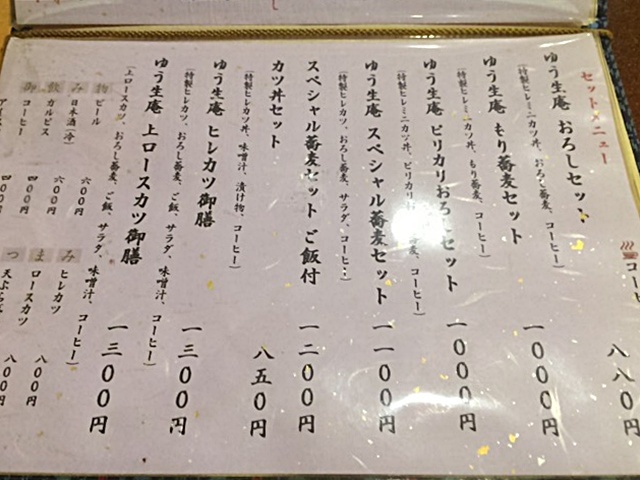 セットメニュー
ゆう生庵 おろしセット
(特製ヒレミニカツ丼、おろし蕎麦、コーヒー)
一〇〇〇円
ゆう生庵 もり蕎麦セット
(特製ヒレミニカツ丼、もり蕎麦、コーヒー)
一〇〇〇円
ゆう生庵 ピリカリおろしセット
(特製ヒレミニカツ丼、ピリカリおろし蕎麦、コーヒー)
一〇〇〇円
ゆう生庵 スペシャル蕎麦セット
(特製ヒレカツ、おろし蕎麦、サラダ、コーヒー)
一一〇〇円
スペシャル蕎麦セット ご飯付
一二〇〇円
カツ丼セット
(特製ヒレカツ丼、味噌汁、漬け物、コーヒー)
八五〇円
ゆう生庵 ヒレカツ御膳
(特製ヒレカツ、おろし蕎麦、ご飯、サラダ、味噌汁、コーヒー)
一三〇〇円
ゆう生庵 上ロースカツ御膳
(上ロースカツ、おろし蕎麦、ご飯、サラダ、味噌汁、コーヒー)
一三〇〇円
御飲み物
ビール 六〇〇円
日本酒(冷) 六〇〇円
カルピス
コーヒー 四〇〇円
四〇〇円
つまみ
ヒレカツ 八〇〇円
ロースカツ 八〇〇円
天ぷら
八八〇円